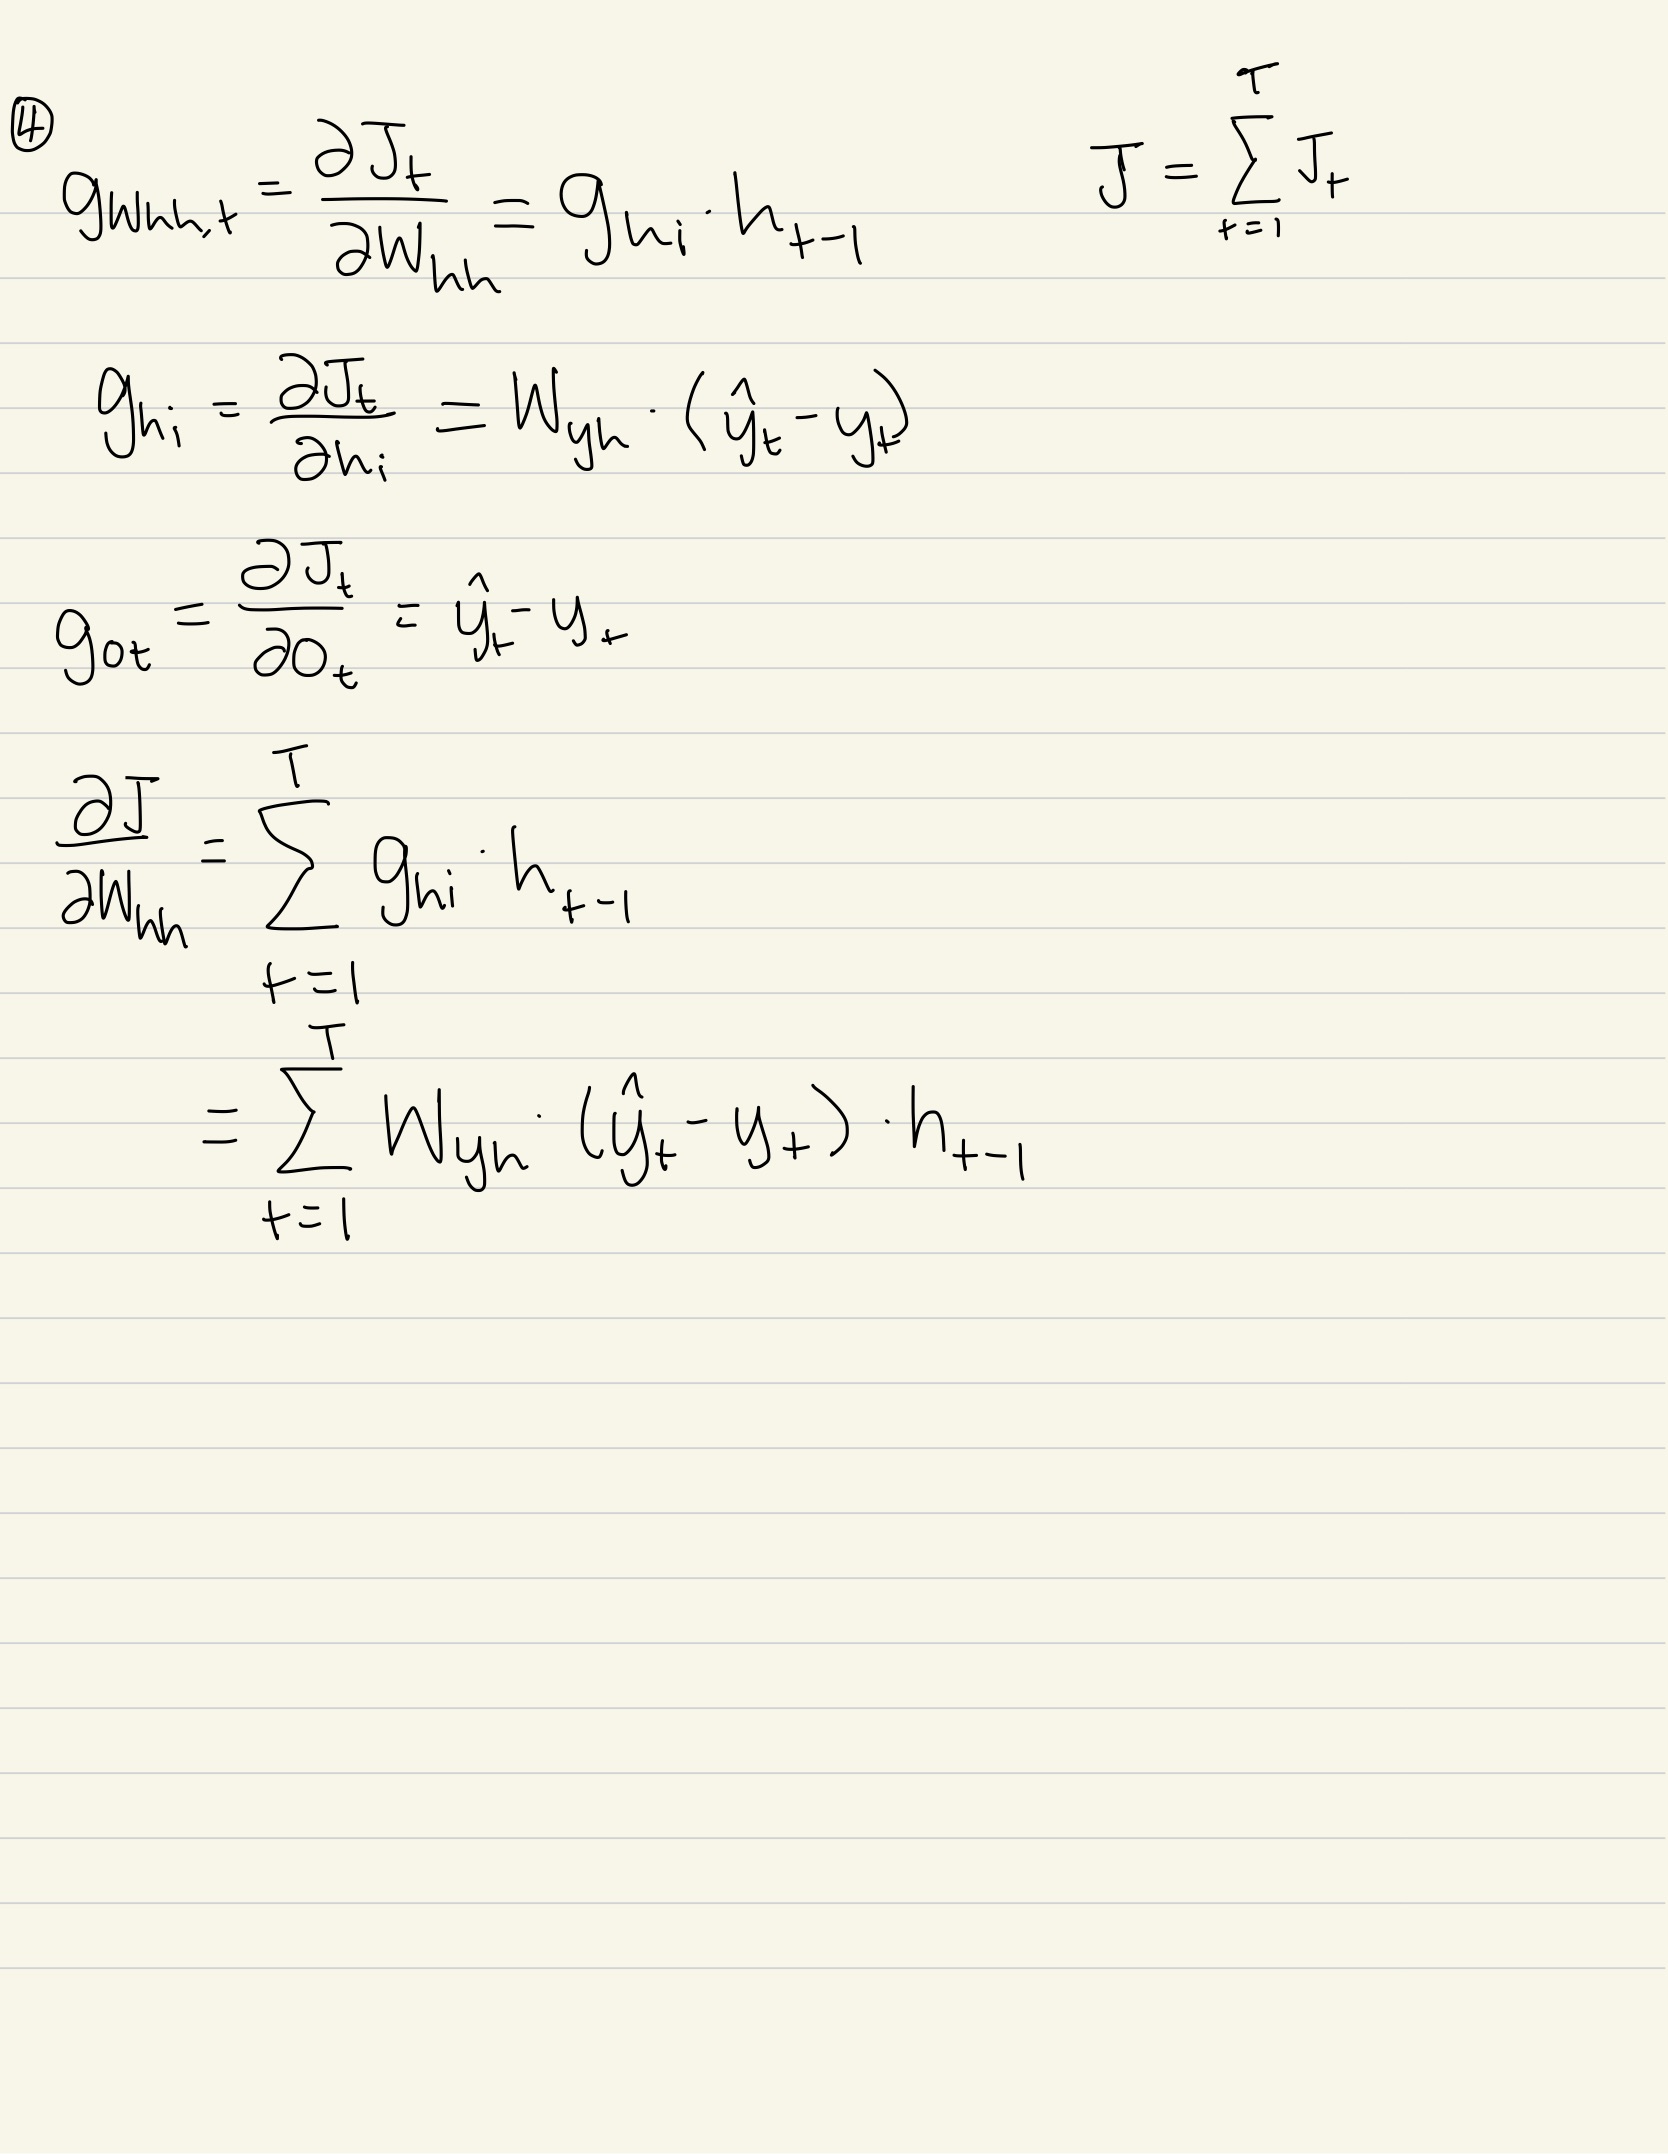 ④
g_{Whh,t} = ∂J_t / ∂W_{hh} = g_{hi} · h_{t-1}
J = Σ_{t=1}^{T} J_t
g_{hi} = ∂J_t / ∂h_i = W_{yh} · (ŷ_t - y_t)
g_{ot} = ∂J_t / ∂O_t = ŷ_t - y_t
∂J / ∂W_{hh} = Σ_{t=1}^{T} g_{hi} · h_{t-1}
= Σ_{t=1}^{T} W_{yh} · (ŷ_t - y_t) · h_{t-1}